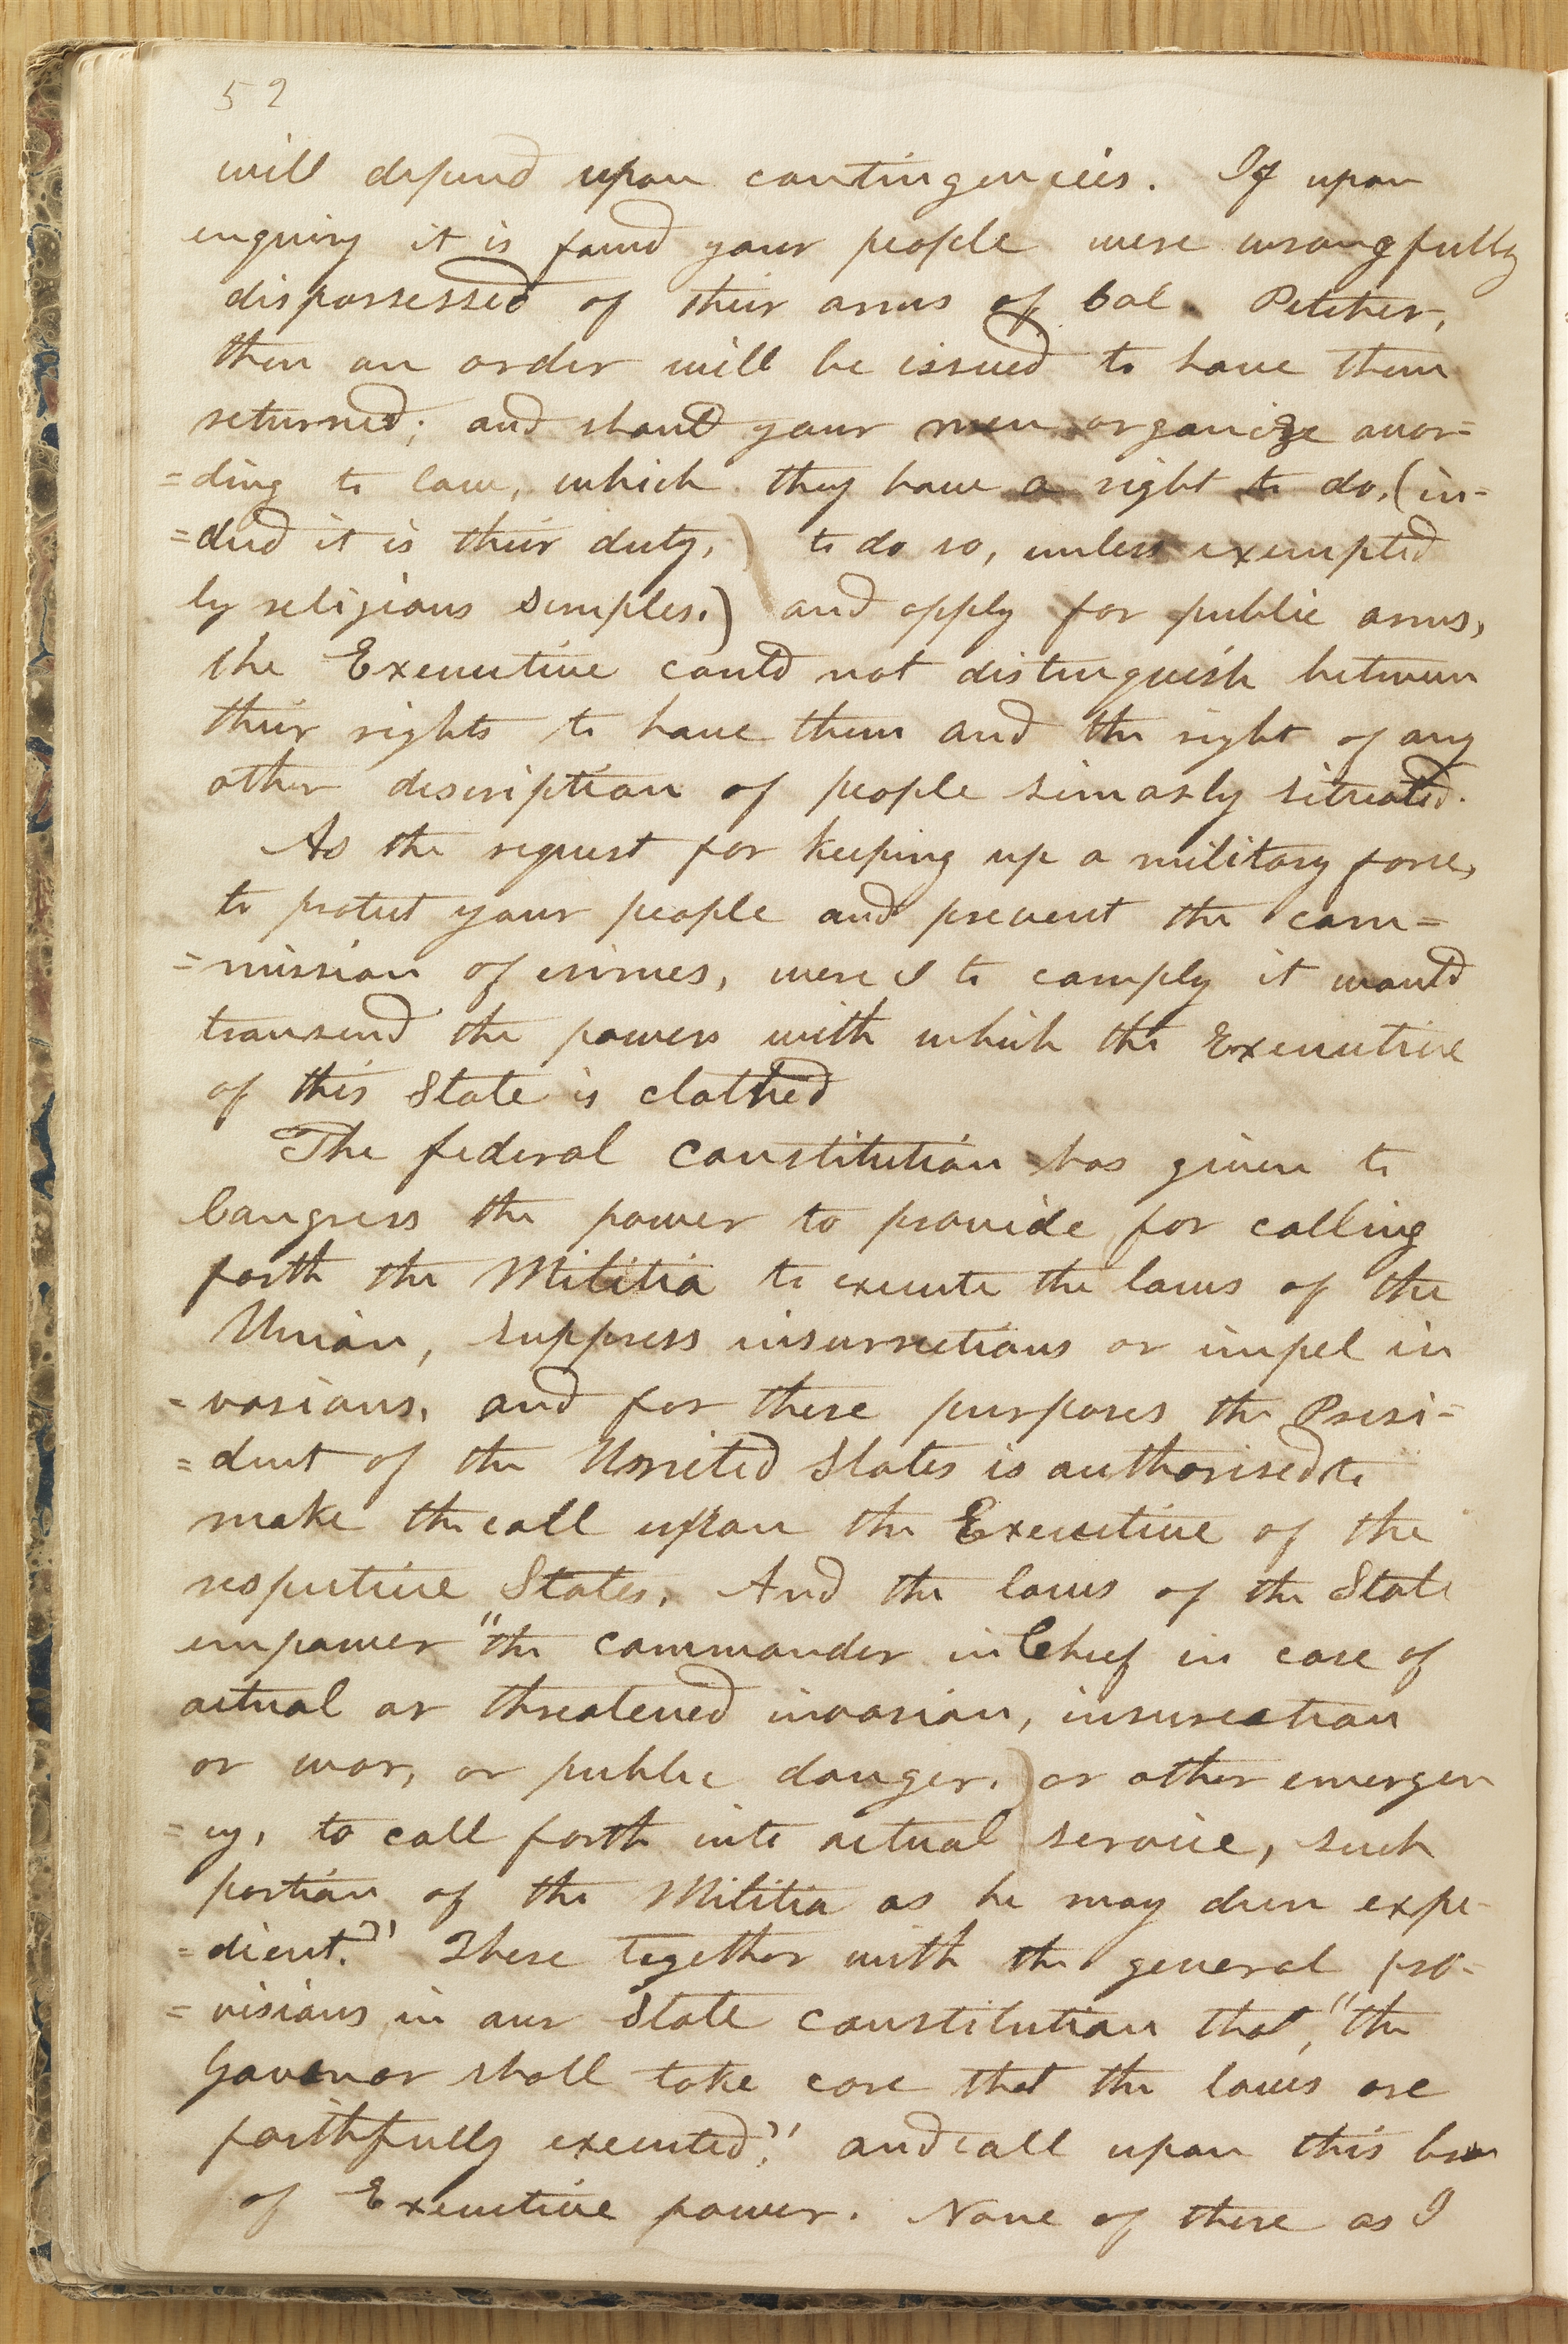 52
will depend upon contingencies. If upon
enquiry it is found your people were wrongfully
dispossessed of their arms of Col. Pitcher,
then an order will be issued to have them
returned; and should your men organize accor=
=ding to law, which they have a right to do, (in-
=deed it is their duty,) to do so, unless exempted
by religious scruples.) and apply for public arms,
the Executive could not distinguish between
their rights to have them and the right of any
other description of people simarly situated.
As the request for keeping up a military force,
to protect your people and prevent the com=
=mission of crimes, were I to comply it would
transend the powers with which the Executive
of this State is clothed
The federal constitution has given to
Congress the power to provide for calling
forth the Militia to execute the laws of the
Union, suppress insurrections or impel in
=vasions, and for these purposes the Presi=
=dent of the United States is authorised to
make the call upon the Executive of the
respective States. And the laws of the State
empower "the commander in Chief in case of
actual or threatened invasion, insurection
or war, or public danger,) or other emergen
=cy, to call forth into actual service, such
portion of the Militia as he may deem expe-
=dient." These together with the general pro=
=visions in our State constitution that, "the
Govenor shall take care that the laws are
faithfully executed," and call upon this
of Executive power. None of these as I